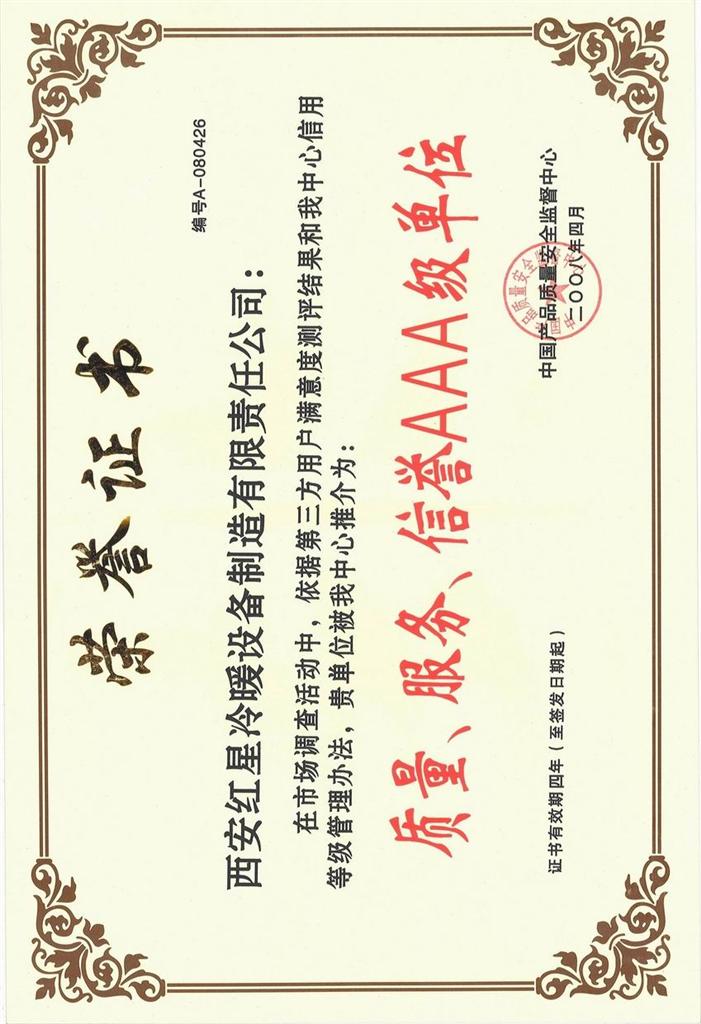 荣誉证书
编号A-080426
西安红星冷暖设备制造有限责任公司：
在市场调查活动中，依据第三方用户满意度测评结果和我中心信用
等级管理办法，贵单位被我中心推介为：
质量、服务、信誉AAA级单位
中国产品质量安全监督中心
二〇〇八年四月
证书有效期四年（至签发日期起）